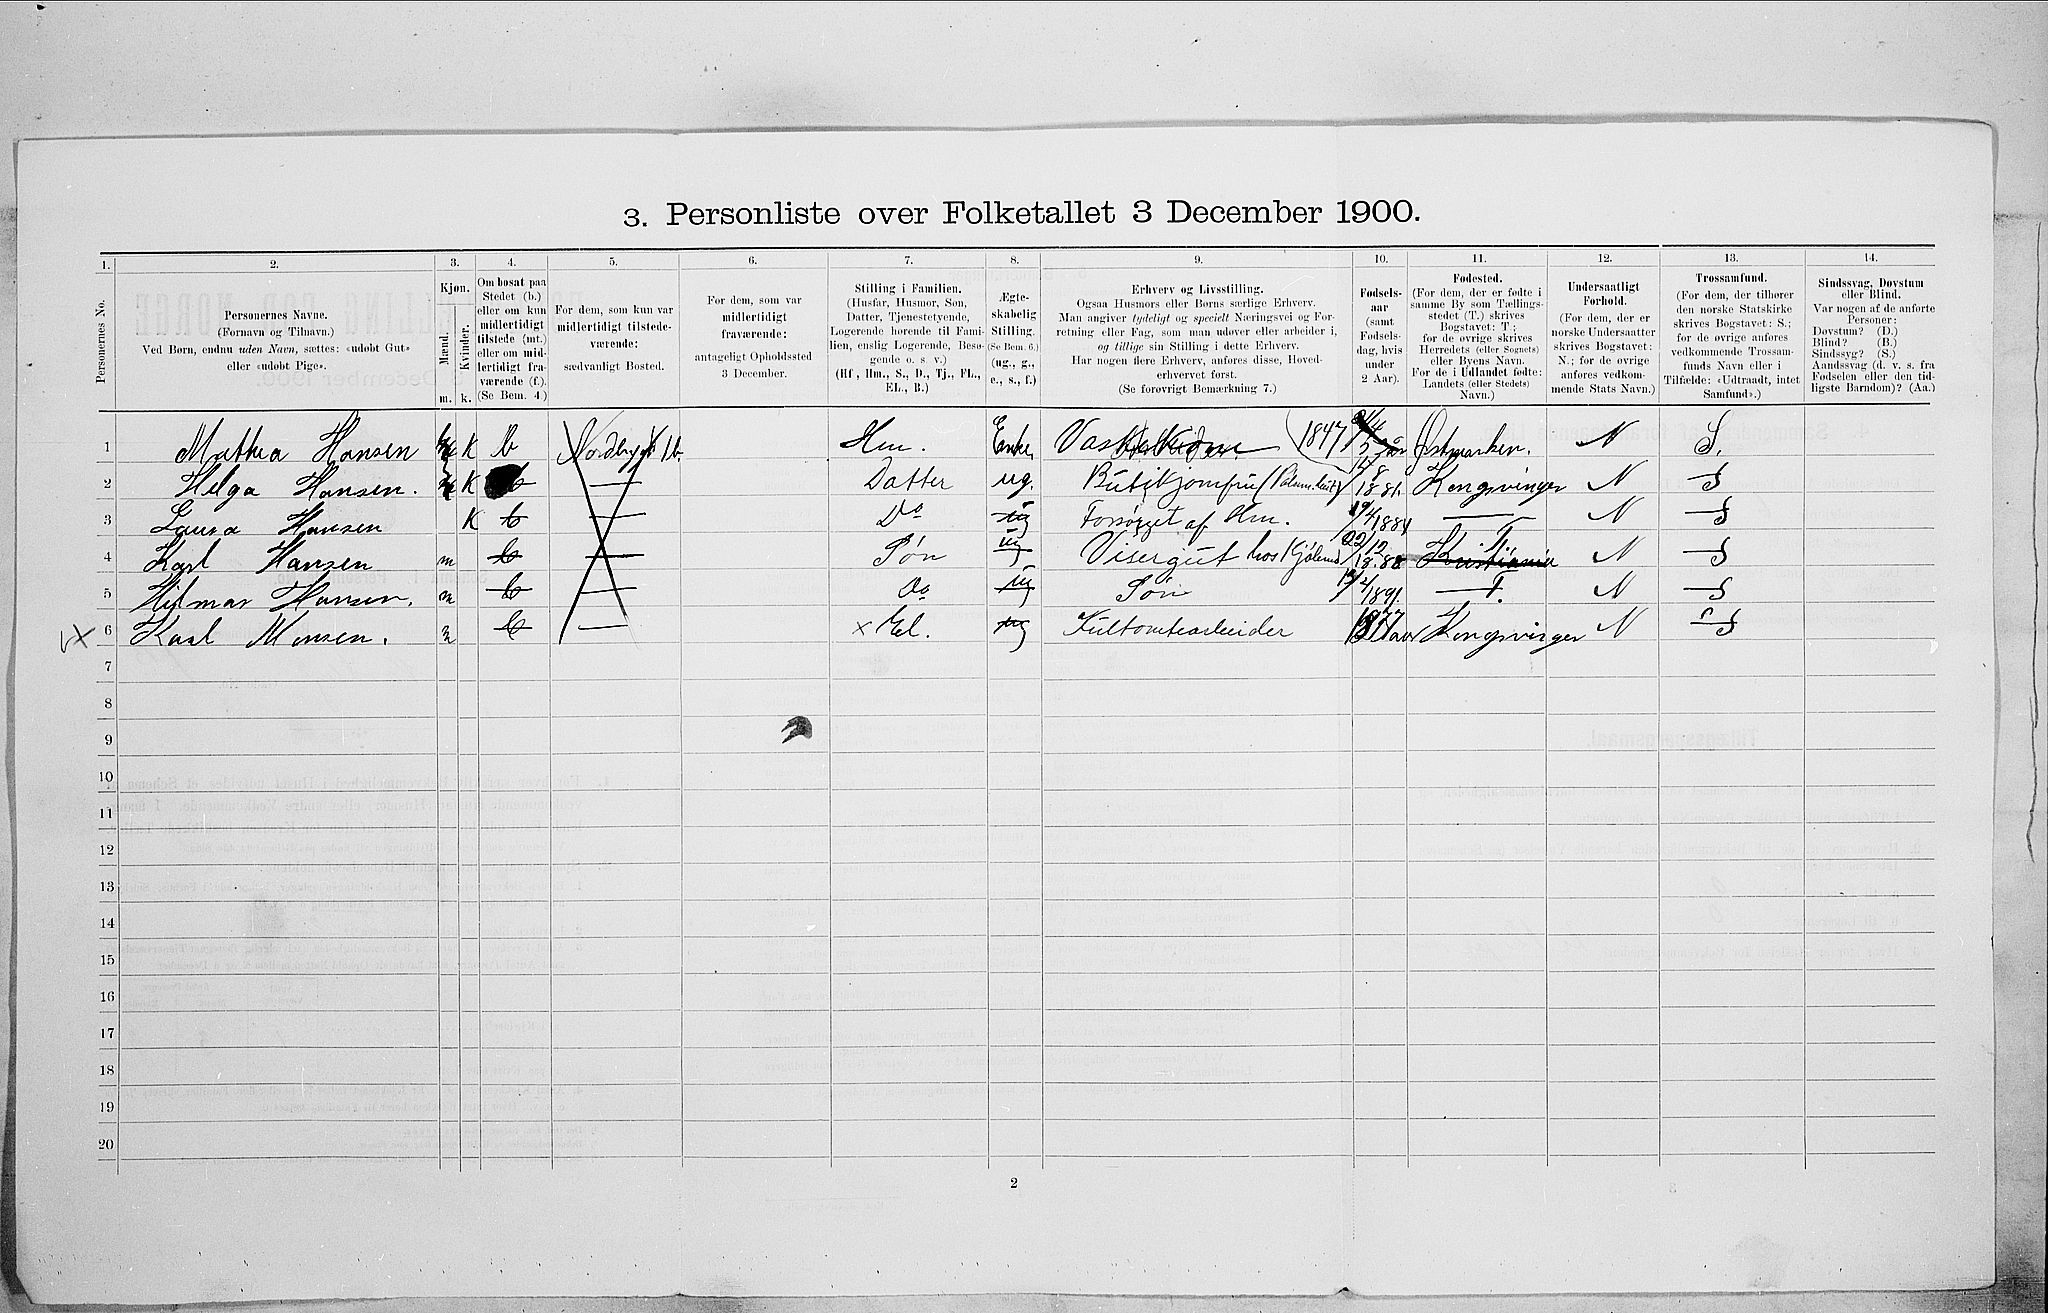 3. Personliste over Folketallet 3 December 1900.
1. 2. 3. 4. 5. 6. 7. 8. 9. 10. 11. 12. 13. 14.
Personernes No.
Personernes Navne.
(Fornavn og Tilnavn.)
Ved Børn, endnu uden Navn, sættes: «udøbt Gut»
eller «udøbt Pige».
Kjøn.
Mænd.
Kvinder.
m. k.
Om bosat paa
Stedet (b.)
eller om kun
midlertidigt
tilstede (mt.)
eller om mid-
lertidigt fra-
værende (f.).
(Se Bem. 4.)
For dem, som kun var
midlertidigt tilstede-
værende:
sædvanligt Bosted.
For dem, som var
midlertidigt
fraværende:
antageligt Opholdssted
3 December.
Stilling i Familien.
(Husfar, Husmor, Søn,
Datter, Tjenestetyende,
Logerende hørende til Fami-
lien, enslig Logerende, Besø-
gende o. s. v.)
(Hf, Hm., S., D., Tj., FL.,
EL., B.)
Ægte-
skabelig
Stilling.
(Se Bem. 6.)
(ug., g.,
e., s., f.)
Erhverv og Livsstilling.
Ogsaa Husmors eller Børns særlige Erhverv.
Man angiver tydeligt og specielt Næringsvei og For-
retning eller Fag, som man udøver eller arbeider i,
og tillige sin Stilling i dette Erhverv.
Har nogen flere Erhverv, anføres disse, Hoved-
erhvervet først.
(Se forøvrigt Bemærkning 7.)
Fødsels-
aar
(samt
Fødsels-
dag, hvis
under
2 Aar).
Fødested.
(For dem, der er fødte i
samme By som Tællings-
stedet (T.) skrives
Bogstavet: T.;
for de øvrige skrives
Herredets (eller Sognets)
eller Byens Navn.
For de i Udlandet fødte:
Landets (eller Stedets)
Navn.)
Undersaatligt
Forhold.
(For dem, der er
norske Undersaatter
skrives Bogstavet:
N.; for de øvrige
anføres vedkom-
mende Stats Navn.)
Trossamfund.
(For dem, der tilhører
den norske Statskirke
skrives Bogstavet: S.;
for de øvrige anføres
vedkommende Trossam-
funds Navn eller i
Tilfælde: «Udtraadt, intet
Samfund».)
Sindssvag, Døvstum
eller Blind.
Var nogen af de anførte
Personer:
Døvstum? (D.)
Blind? (B.)
Sindssyg? (S.)
Aandssvag (d. v. s. fra
Fødselen eller den tid-
ligste Barndom)? (Aa.)
1 Mathea Hansen K b Nordbygt 16. Hm. Enke 1847 Østmarken. N S.
2 Helga Hansen. K b — Datter ug. Butikjomfru 17/8 1881. Kongsvinger N S
3 Laura Hansen K b — Do ug Forsørget af Hm. 19/4 1884 — N S
4 Karl Hansen m b — Søn ug Visergut hos 22/12 1888 Kristiania T. N S
5 Hilmar Hansen. m b — Do ug Søn 1891. — T. N S
6 Karl Monsen. m b — × El. ug 1877 Kongsvinger N S
7
8
9
10
11
12
13
14
15
16
17
18
19
20
2